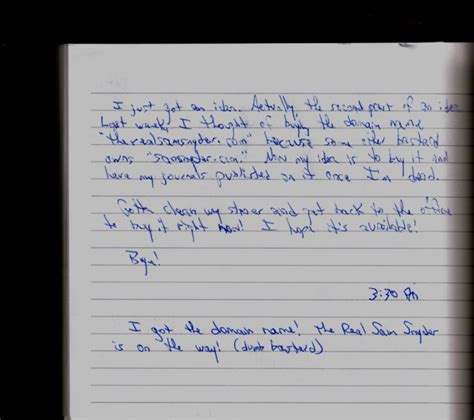 I just got an idea. Actually, the second part of an idea.
Last week, I thought of buying the domain name
"therealsamsnyder.com" because some other bastard
owns "samsnyder.com." Now my idea is to buy it and
have my journals published on it once I'm dead.
Gotta clean my and get back to the office
to buy it right now! I hope it's available!
Bye!
3:30 PM
I got the domain name! The Real Sam Snyder
is on the way! (dumb bastard)